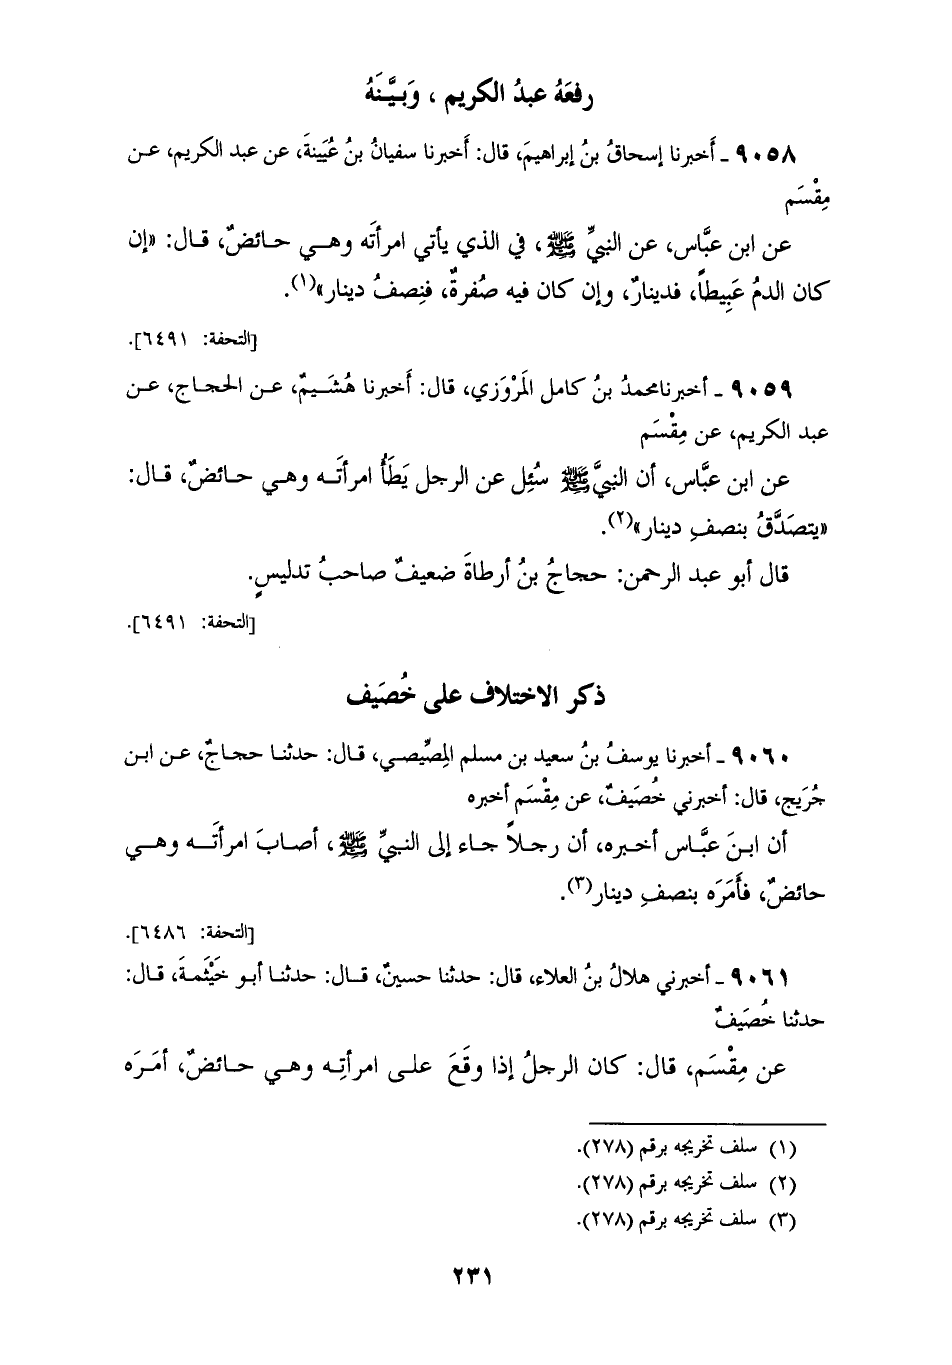 رفعَهُ عبدُ الكريم ، وَبيَّنَهُ
٩٠٥٨ ـ أَخبرنا إسحاقُ بنُ إبراهيمَ، قال: أَخبرنا سفيانُ بنُ عُيَينةَ، عن عبد الكريم، عـن
مِقْسَم
عن ابن عبَّاس، عن النبيِّ ﷺ، في الذي يأتي امرأتَه وهـي حـائضٌ، قـال: «إن
كان الدمُ عَبِيطاً، فدينارٌ، وإن كان فيه صُفرةٌ، فنِصفُ دينار»(١).
[التحفة: ٦٤٩١].
٩٠٥٩ ـ أخبرنامحمدُ بنُ كامل المَرْوَزي، قال: أَخبرنا هُشَـيمٌ، عـن الحجـاج، عـن
عبد الكريم، عن مِقْسَم
عن ابن عبَّاس، أن النبيَّ ﷺ سُئِل عن الرجل يَطَأُ امرأتَـه وهـي حـائضٌ، قـال:
«يتصَدَّقُ بنصفِ دينار»(٢).
قال أبو عبد الرحمن: حجاجُ بنُ أرطاةَ ضعيفٌ صاحبُ تدليسٍ.
[التحفة: ٦٤٩١].
ذكر الاختلاف على خُصَيف
٩٠٦٠ ـ أخبرنا يوسفُ بنُ سعيد بن مسلم المِصِّيصـي، قـال: حدثنـا حجـاجٌ، عـن ابـن
جُرَيج، قال: أخبرني خُصَيفٌ، عن مِقْسَم أخبره
أن ابـنَ عبَّـاس أخـبره، أن رجـلاً جـاء إلى النـبيِّ ﷺ، أصـابَ امرأتَـــه وهــي
حائضٌ، فأَمَرَه بنصفِ دينار(٣).
[التحفة: ٦٤٨٦].
٩٠٦١ ـ أخبرني هلالُ بنُ العلاء، قال: حدثنا حسينٌ، قـال: حدثنـا أبـو خَيْثَمـةَ، قـال:
حدثنا خُصَيفٌ
عن مِقْسَم، قال: كان الرجلُ إذا وقَعَ علـى امرأتِـه وهـي حـائضٌ، أمَـرَه
(١) سلف تخريجه برقم (٢٧٨).
(٢) سلف تخريجه برقم (٢٧٨).
(٣) سلف تخريجه برقم (٢٧٨).
٢٣١